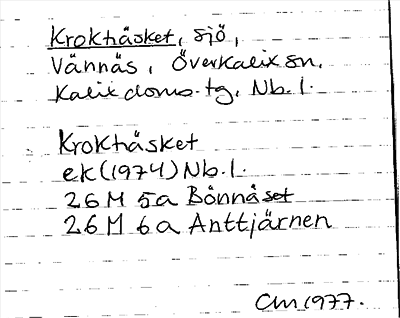 Krokhåsket, sjö,
Vännäs, Överkalix sn,
Kalix doms.tg, Nb.l.
Krokhåsket
ek (1974) Nb.l.
26 M 5a Bönnåset
26 M 6a Anttjärnen
CM 1977.